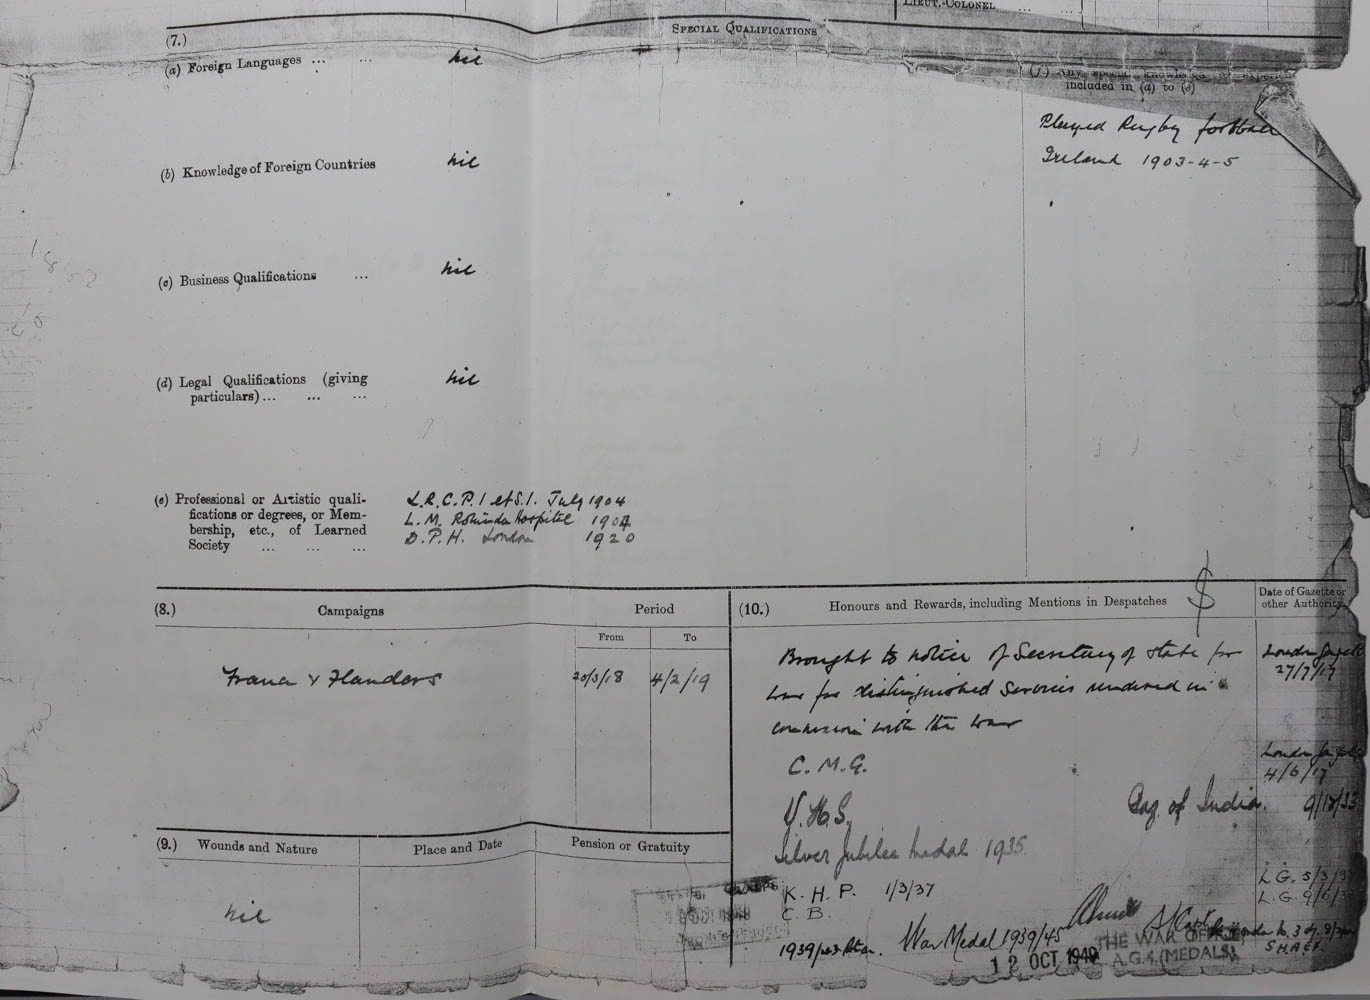 LIEUT.-COLONEL ... ...
(7.) SPECIAL QUALIFICATIONS
(a) Foreign Languages ... ... nil
(f) Any special knowledge or experience
included in (a) to (e)
Played Rugby football
Ireland 1903-4-5
(b) Knowledge of Foreign Countries nil
(c) Business Qualifications ... nil
(d) Legal Qualifications (giving nil
particulars) ... ... ...
(e) Professional or Artistic quali- L.R.C.P.I et S.I. July 1904
fications or degrees, or Mem- L.M. Rotunda Hospital 1904
bership, etc., of Learned D.P.H. London 1920
Society ... ... ...
(8.) Campaigns Period
From To
France & Flanders 20/3/18 4/2/19
(9.) Wounds and Nature Place and Date Pension or Gratuity
nil
(10.) Honours and Rewards, including Mentions in Despatches Date of Gazette or
other Authority
Brought to notice of Secretary of State for London Gazette
War for distinguished Services rendered in 27/7/17
connexion with the War
C.M.G. London Gazette
4/6/17
V.H.S. Gaz. of India.
Silver Jubilee Medal 1935
K.H.P. 1/3/37 L.G. 5/3/37
C.B. L.G.
War Medal 1939/45
THE WAR OFFICE
12 OCT 1949 A.G.4.(MEDALS) S.H.A.E.F.